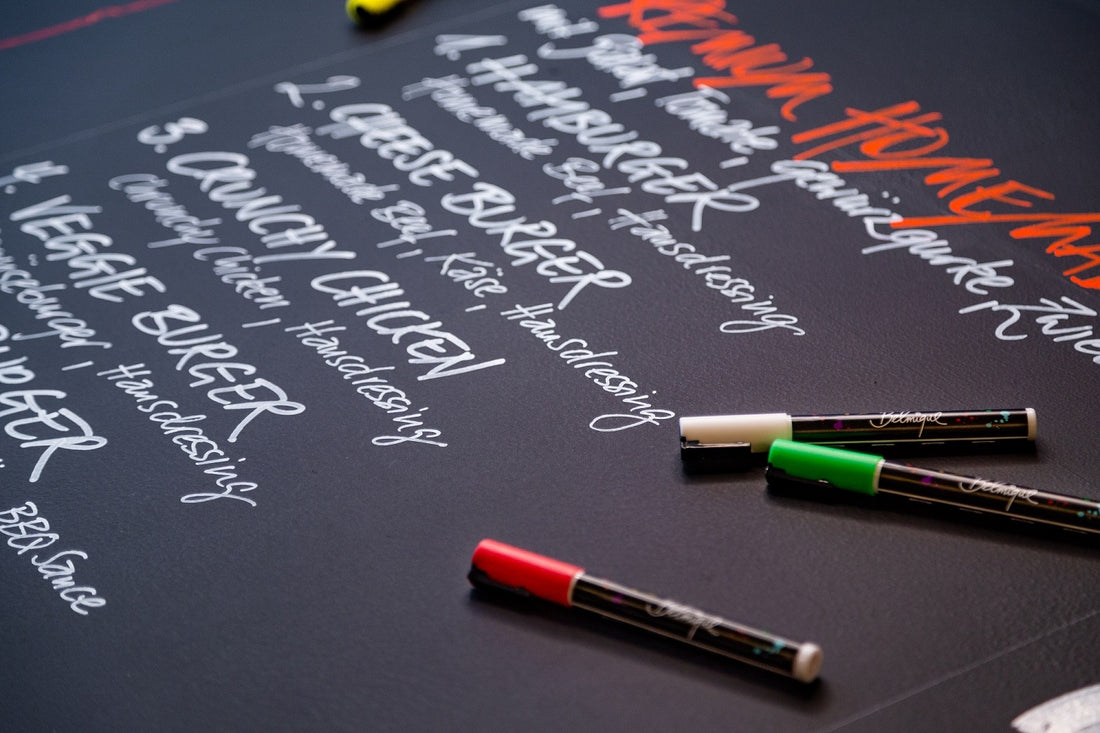 PREMIUM HOMEMA
mit Salat, Tomate, Gewürzgurke, Zwie
1. HAMBURGER
Homemade Beef, Hansdressing
2. CHEESE BURGER
Homemade Beef, Käse, Hansdressing
3. CRUNCHY CHICKEN
Crunchy Chicken, Hansdressing
4. VEGGIE BURGER
müseburger, Hansdressing
BURGER
BBQ Sauce